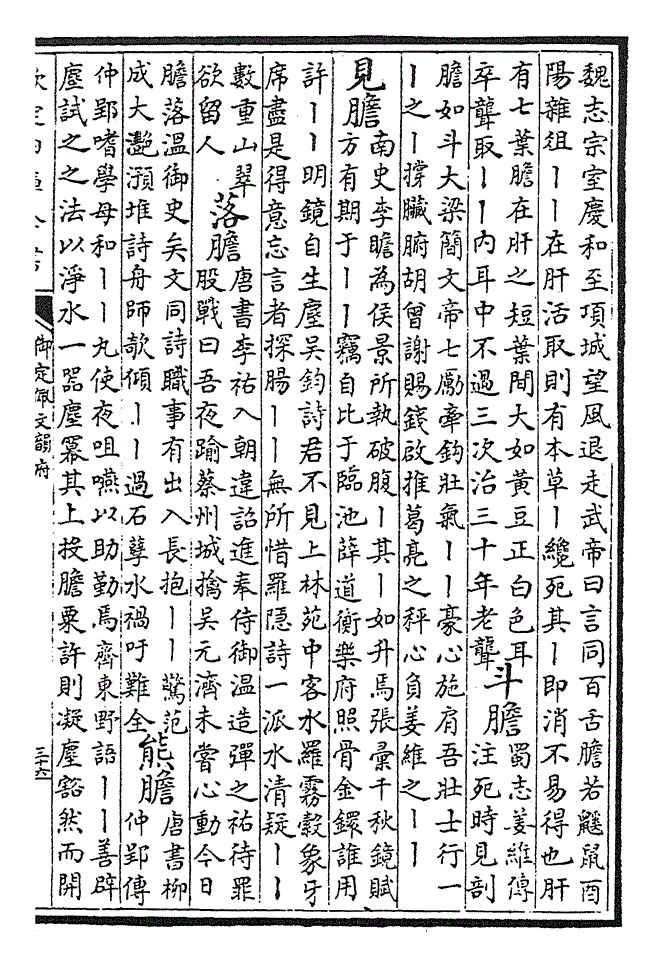 魏志宗室慶和至項城望風退走武帝曰言同百舌膽若鼷鼠酉
陽雜俎丨丨在肝活取則有本草丨纔死其丨即消不易得也肝
有七葉膽在肝之短葉間大如黃豆正白色耳
卒聾取丨丨内耳中不過三次治三十年老聾
斗膽
蜀志姜維傳
注死時見剖
膽如斗大梁簡文帝七勵牽鈎壯氣丨丨豪心施肩吾壯士行一
丨之丨撑臟腑胡曾謝賜錢啟推葛亮之秤心負姜維之丨丨
見膽
南史李瞻為侯景所執破腹丨其丨如升焉張彙千秋鏡賦
方有期于丨丨竊自比于臨池薛道衡樂府照骨金鐶誰用
許丨丨明鏡自生塵吳鈞詩君不見上林苑中客水羅霧縠象牙
席盡是得意忘言者探腸丨丨無所惜羅隱詩一派水清疑丨丨
數重山翠
欲留人
落膽
唐書李祐入朝違詔進奉侍御溫造彈之祐待罪
股戰曰吾夜踰蔡州城擒吳元濟未嘗心動今日
膽落溫御史矣文同詩職事有出入長抱丨丨驚范
成大灔澦堆詩舟師欹傾丨丨過石孽水禍吁難全
熊膽
唐書柳
仲郢傳
仲郢嗜學母和丨丨丸使夜咀嚥以助勤焉齊東野語丨丨善辟
塵試之之法以淨水一器塵羃其上投膽粟許則凝塵豁然而開
御定佩文韻府
三十六